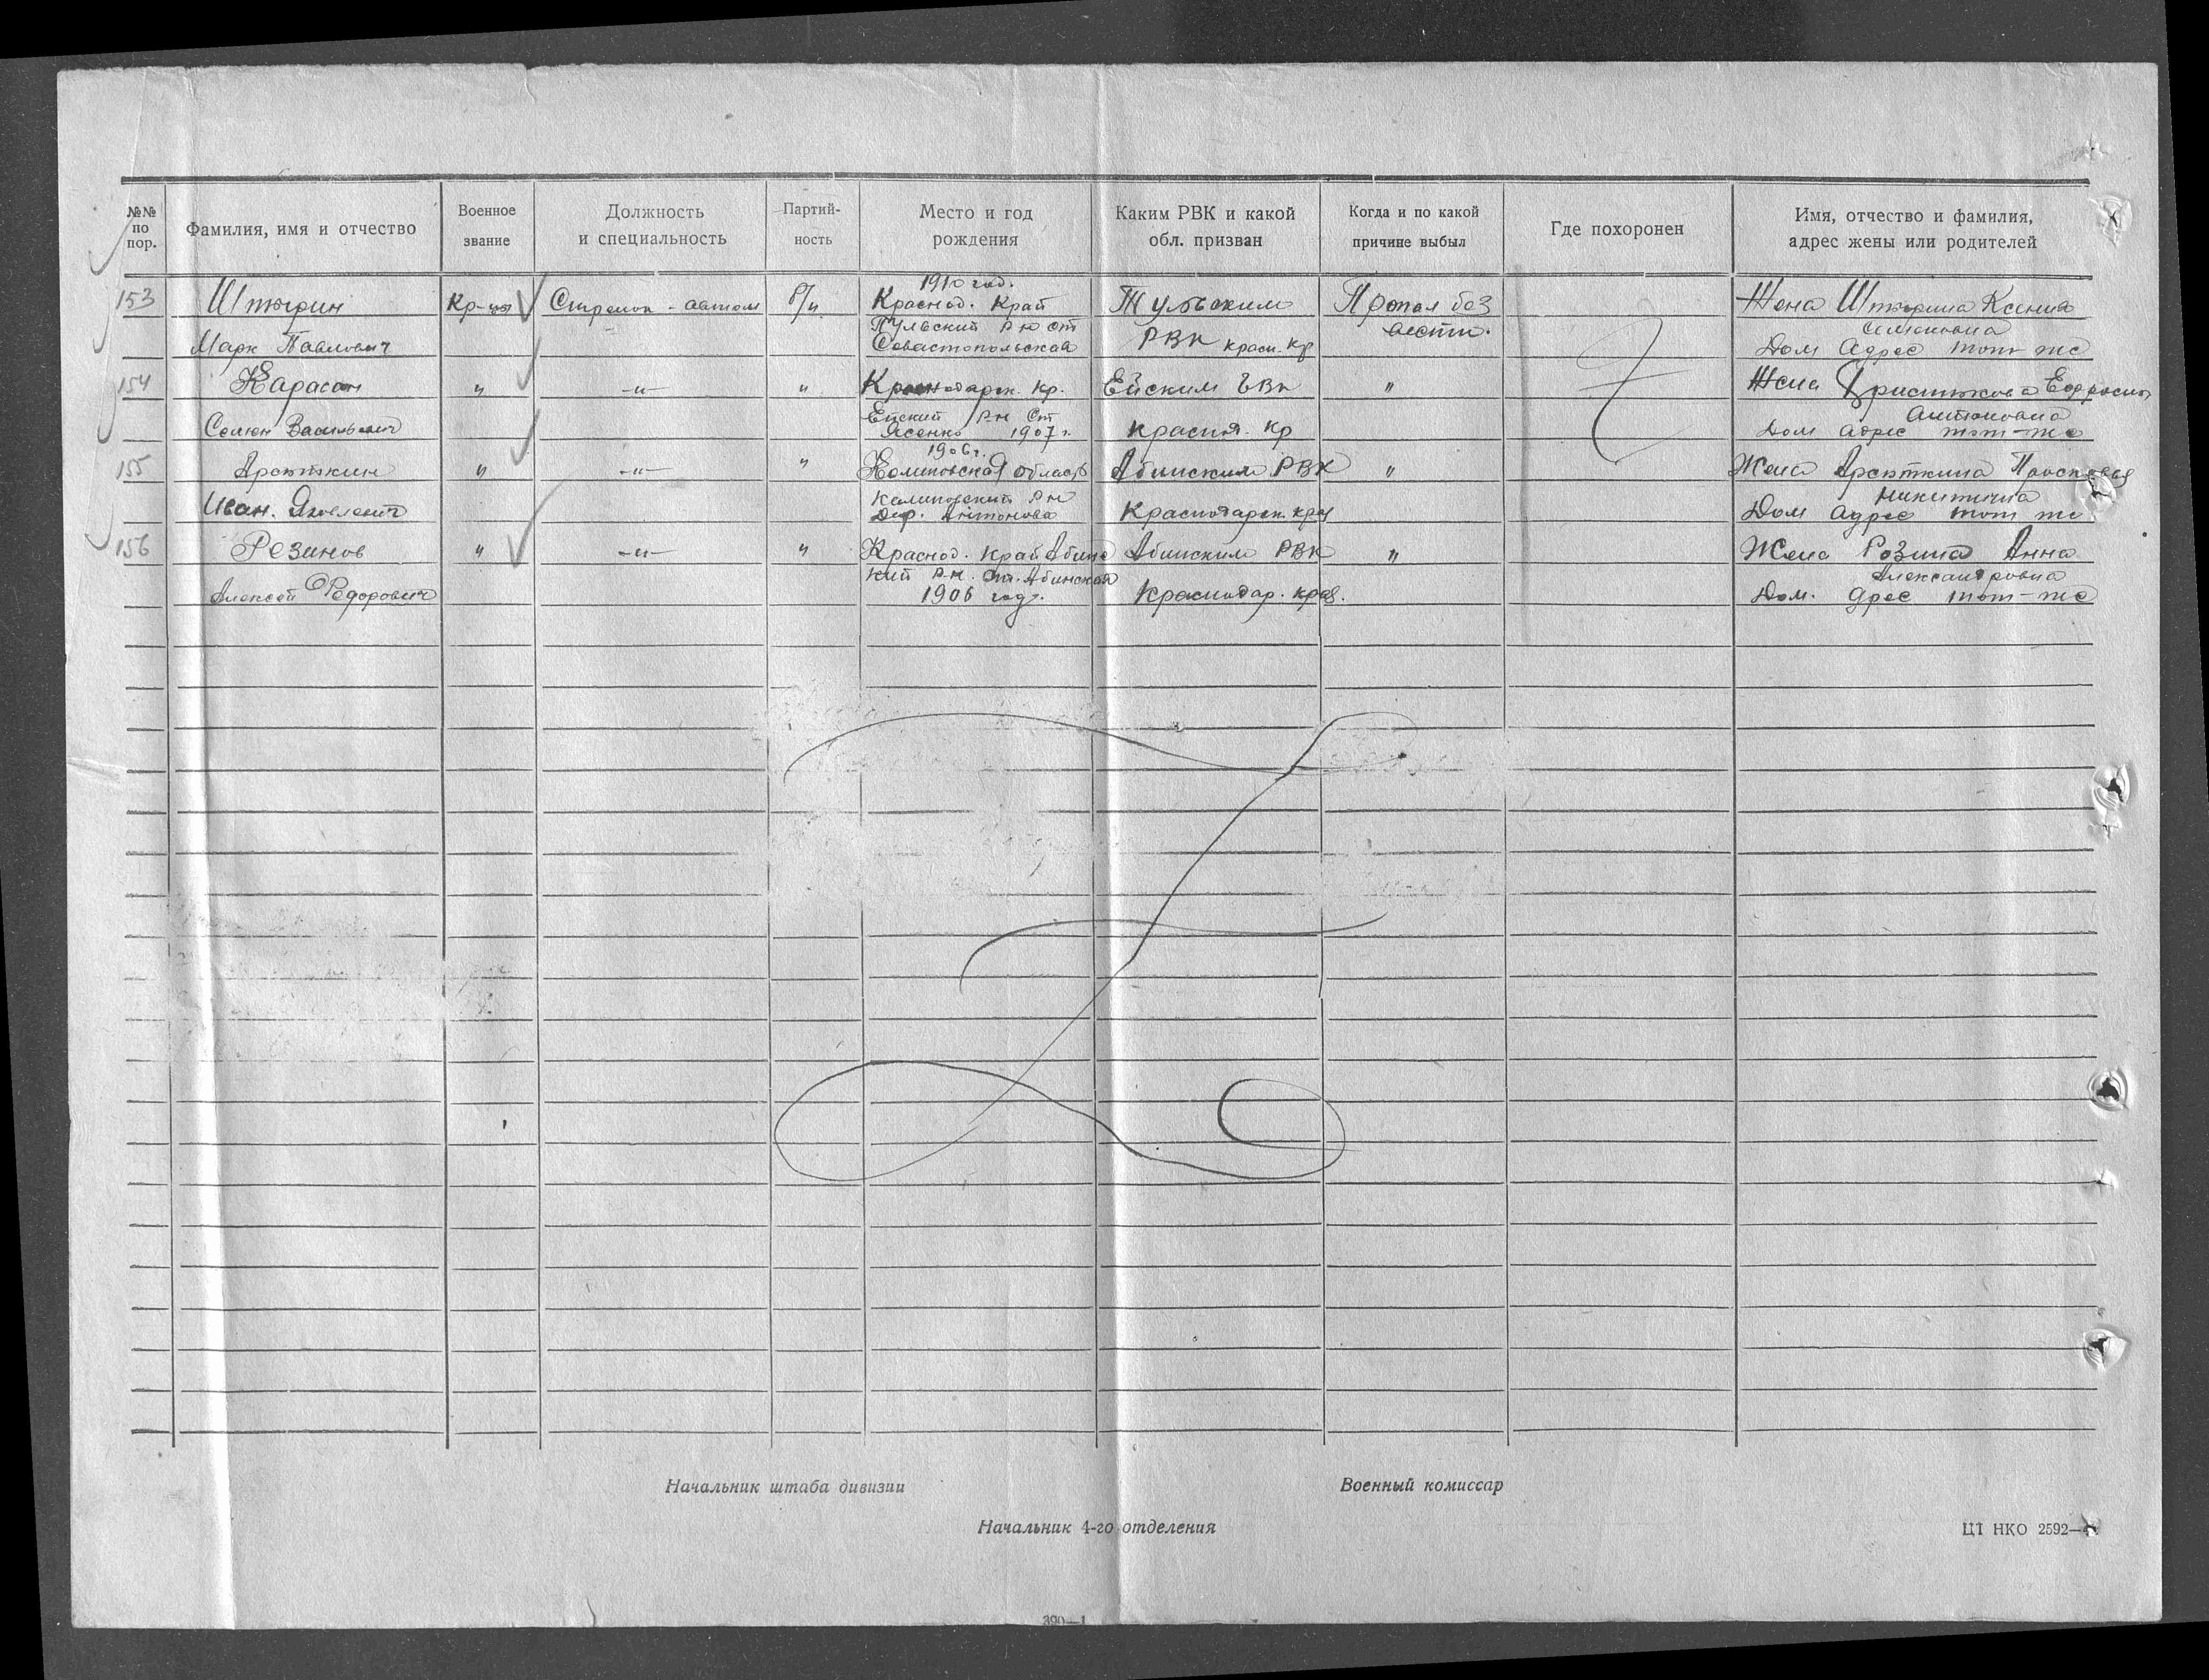 №№ по пор.
Фамилия, имя и отчество
Военное звание
Должность и специальность
Партий-ность
Место и год рождения
Каким РВК и какой обл. призван
Когда и по какой причине выбыл
Где похоронен
Имя, отчество и фамилия, адрес жены или родителей
1910 год.
153 Штырин Кр-ц Стрелок - автом б/п Краснод. Край Тульским Пропал без Жена Штырина Ксения
Тульский р-н ст вести.
Марк Павлович Севастопольская РВК красн. кр Дом адрес тот-же
154 Карасан " -"- " Краснодарск. кр. Ейским РВК " Жена
Ейский р-н ст Антоновна
Семен Васильевич Ясенка 1907г. красная. кр Дом адрес тот-же
1906г.
155 Арюткин " -"- " Калиновская область Абинским РВК " Жена Арюткина Прасковья
Калиновский р-н Никитична
Иван. Яковлевич Дер. Антонова Краснодарск. края Дом адрес тот же
156 Резинов " -"- " Краснод. край Абинс Абинским РВК " Жена Розина Анна
кий р-н. ст. Абинская Александровна
Алексей Федорович 1906 год. Краснодар. края. Дом. адрес тот-же
Начальник штаба дивизии
Военный комиссар
Начальник 4-го отделения
ЦТ НКО 2592—
390—1